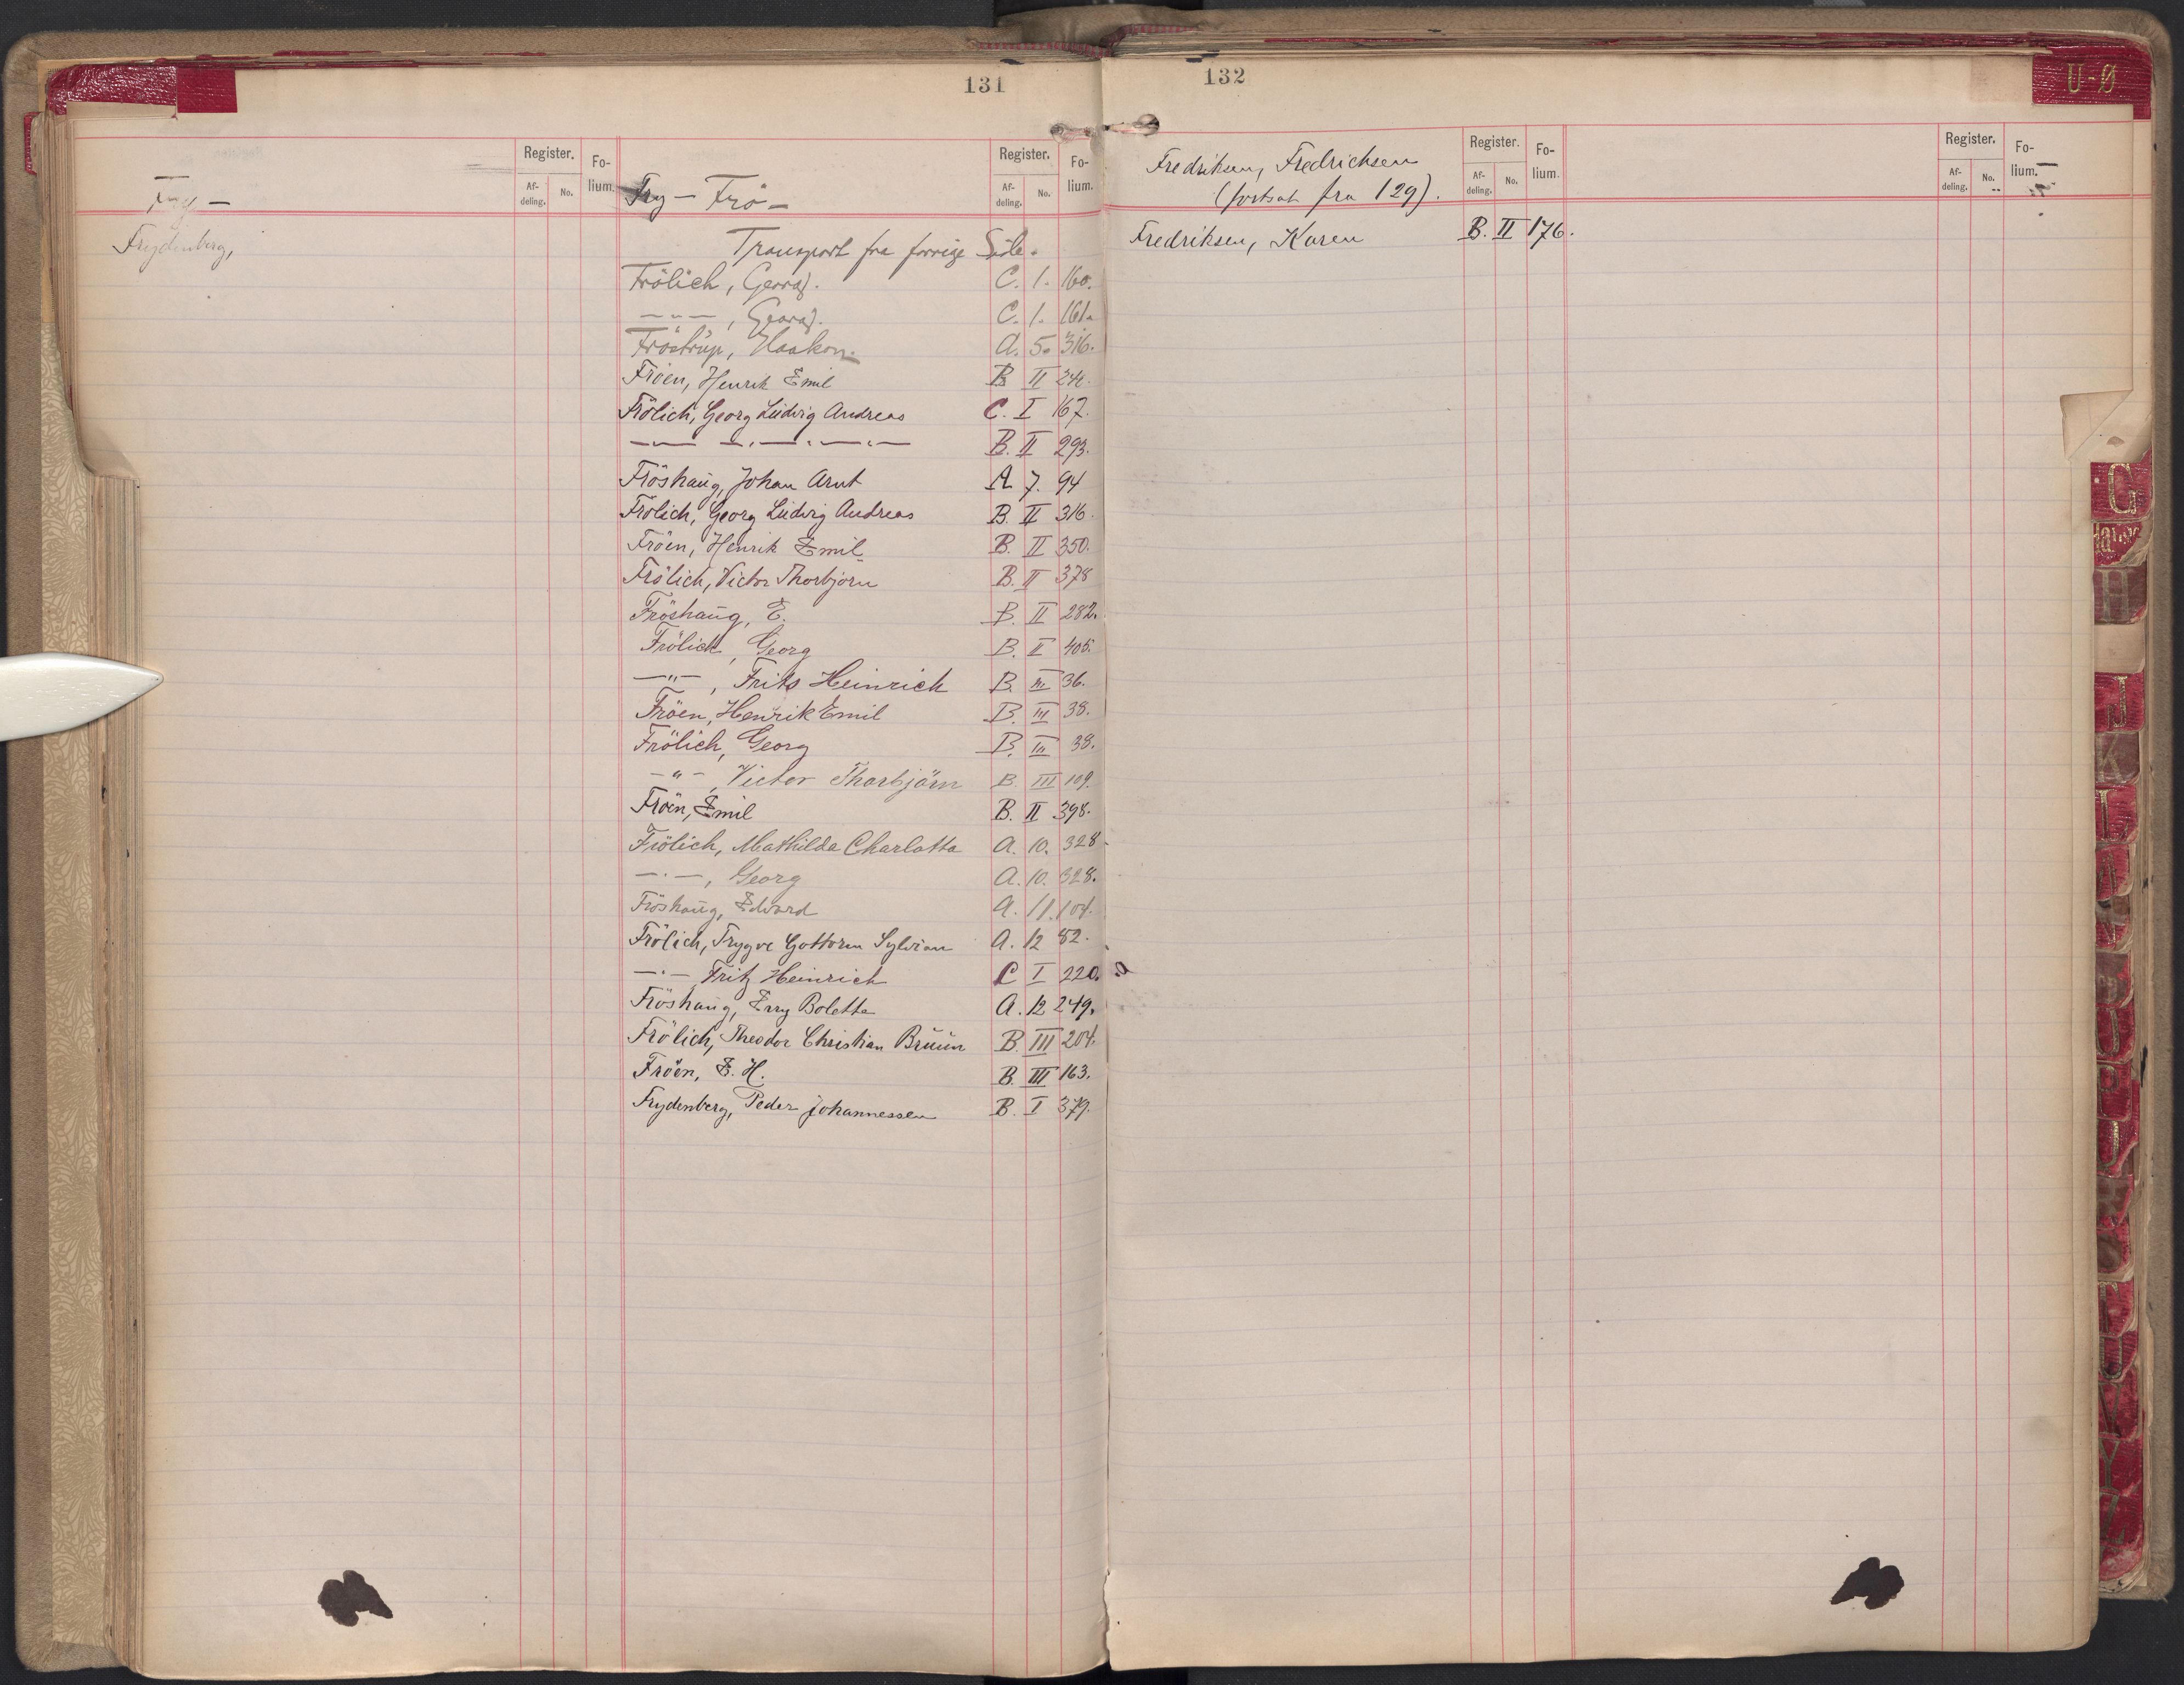 131
Register.
Af-
deling.
No.
Fo-
lium.
Fry -
Frydenberg,
Register.
Af-
deling.
No.
Fo-
lium.
Fry - Frö -
Transport fra forrige Side.
Frölich, Georg. C. 1. 160.
- " -, Georg. C. 1. 161.
Fröstrup, Haakon. A. 5. 316.
Fröen, Henrik Emil B II 24.
Frölich, Georg Ludvig Andreas C. I 167.
- " - - " - " - " - B. II 293.
Fröshaug, Johan Arnt A 7. 94
Frölich, Georg Ludvig Andreas B. II 316.
Fröen, Henrik Emil B. II 350.
Frölich, Victor Thorbjörn B. II 378
Fröshaug, E. B. II 282.
Frölich, Georg B. II 405.
- " -, Frits Heinrich B. III 36.
Fröen, Henrik Emil B. III 38.
Frölich, Georg B. III 38.
- " -, Victor Thorbjörn B. III 109.
Fröen, Emil B. II 398.
Frölich, Mathilda Charlotta A. 10. 328
- " -, Georg A. 10. 328.
Fröshaug, Edvard A. 11. 104.
Frölich, Trygve Gottorm Sylvian A. 12 82.
- " - Fritz Heinrich C I 220.
Fröshaug, Erry Bolette A. 12 249.
Frölich, Theodor Christian Bruun B. III 204.
Fröen, E. H. B. III 163.
Frydenberg, Peder Johannessen B. I 379.
132
Fredriksen, Fredrichsen
(fortsat fra 129).
Register.
Af-
deling.
No.
Fo-
lium.
Fredriksen, Karen B. II 176.
Register.
Af-
deling.
No.
Fo-
lium.
U-Ø
G
H
J
K
L